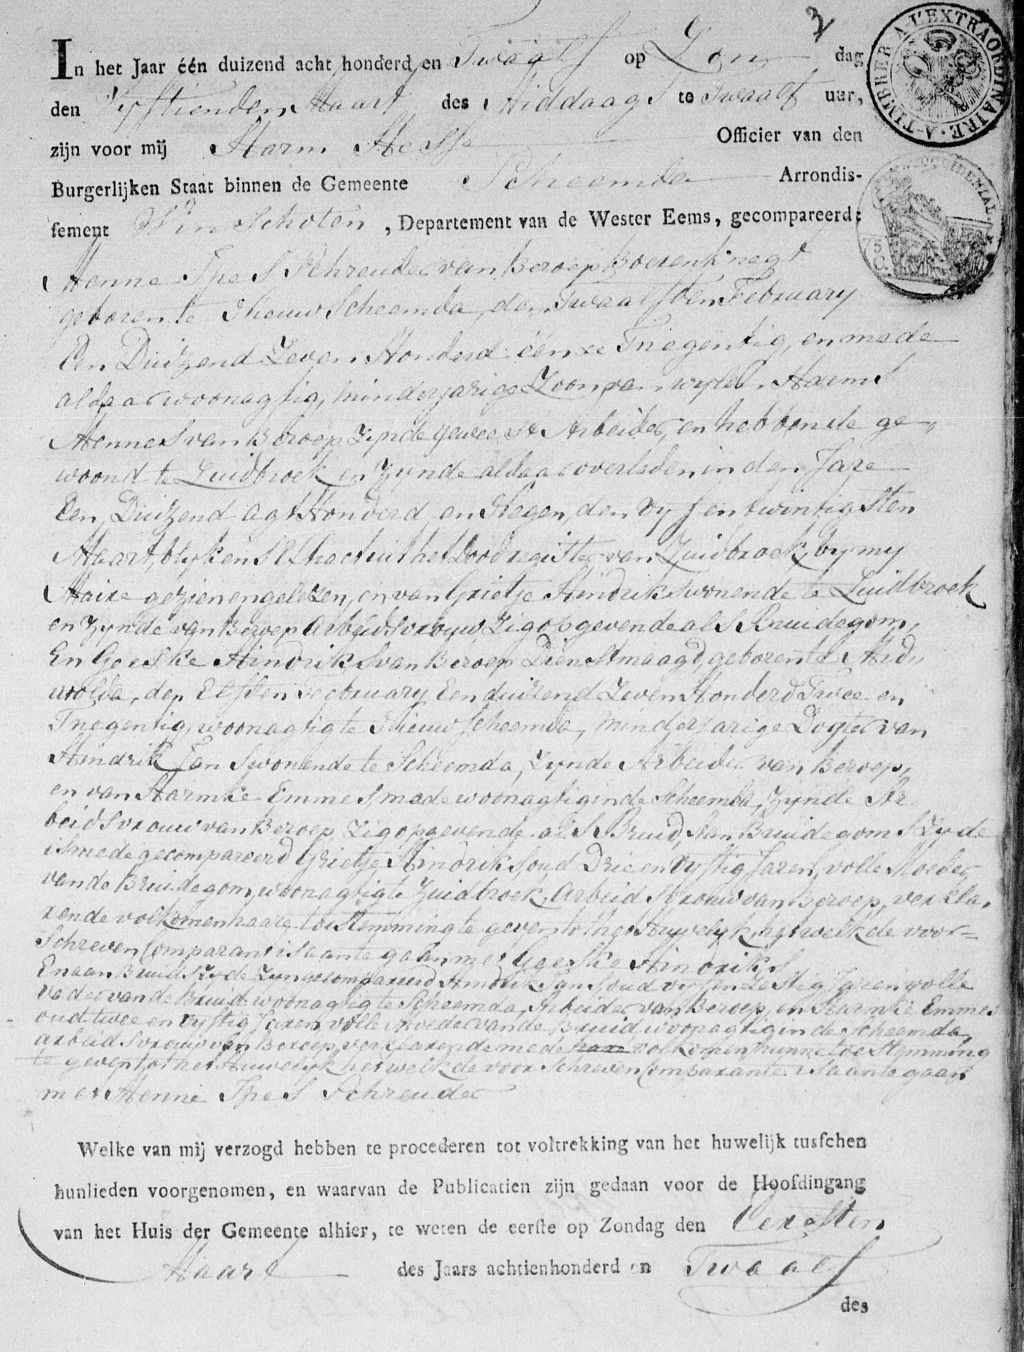 2
A TIMBRER A L'EXTRAORDINAIRE
75 C
In het Jaar één duizend acht honderd en Twaalf op Zon dag
den Vyftienden Maart des Middaags te Twaalf uur,
zijn voor mij Harm Hesse Officier van den
Burgerlijken Staat binnen de Gemeente Scheemda Arrondis-
sement Winschoten, Departement van de Wester Eems, gecompareerd:
Henne Schreuder van Beroep Boerenknegt
geboren te Nieuw Scheemda, den Twaalfden February
Een Duizend Zeven Honderd één en Tnegentig, en mede
aldaar woonagtig, minderjarige Zoon van wylen Harm
Hennes van Beroep Zynde geweest Arbeider, en hebbende ge-
woond te Zuidbroek en Zynde aldaar overleden in den Jare
Een Duizend agt Honderd en Negen, den vyf en twintigsten
Maart, blykens Extract uit het Doodregister van Zuidbroek, by my
Maire gezien en gelezen, en van Grietje Hindriks wonende te Zuidbroek
en Zynde van Beroep Arbeidsvrouw Zig opgevende als Bruidegom,
En Geeske Hindriks van Beroep Dienstmaagd, geboren te Mid-
wolda, den Elfden February Een duizend Zeven Honderd Twee en
Tnegentig, woonagtig te Nieuw Scheemda, minderjarige Dogter van
Hindrik Jans wonende te Scheemda, Zynde Arbeider van Beroep,
en van Harmke Emmes mede woonagtig in de Scheemda, Zynde Ar-
beidsvrouw van Beroep Zig opgevende als Bruid, Aan Bruidegoms Zyde
is mede gecompareerd Grietje Hindriks oud Drie en vyftig Jaren, volle Moeder
van de Bruidegom, woonagtig te Zuidbroek, Arbeidsvrouw van Beroep, verkla-
rende volkomen haare toestemming te geven tot het Huwelyk, hetwelk de voor-
Schreven Comparant is aan te gaan met Geeske Hindriks
En aan Bruids Zyde Zyn gecompareerd Hindrik Jans oud vyf en Zestig Jaren volle
Vader van de Bruid woonagtig te Scheemda, Arbeider van Beroep, en Harmke Emmes
oud twee en vyftig Jaren, volle Moeder van de Bruid woonagtig in de Scheemda,
arbeidsvrouw van Beroep, verklarende mede volkomen hunne toestemming
te geven tot het Huwelyk hetwelk de voorschreven Comparante is aan te gaan
met Henne Schreuder
Welke van mij verzogd hebben te procederen tot voltrekking van het huwelijk tusschen
hunlieden voorgenomen, en waarvan de Publicatien zijn gedaan voor de Hoofdingang
van het Huis der Gemeente alhier, te weten de eerste op Zondag den Eersten
Maart des Jaars achtienhonderd en Twaalf
des